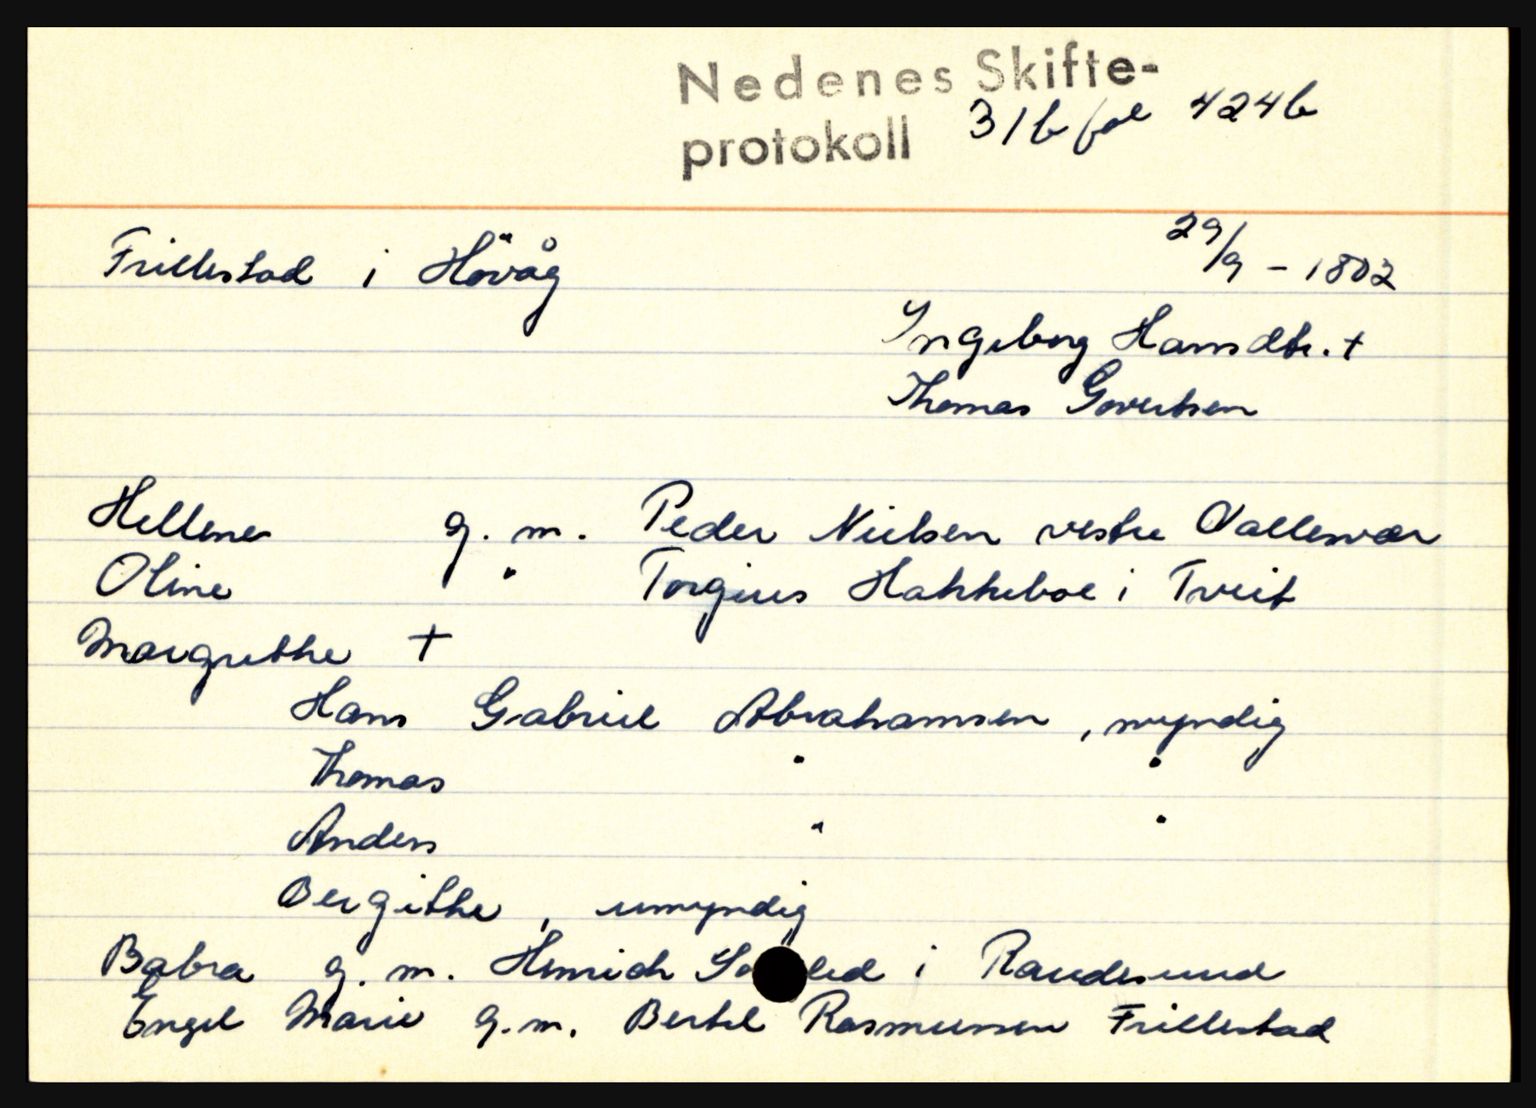 Nedenes Skifte-
protokoll 31b fol 424b
Frillestad i Høvåg 29/9 - 1802
Ingeborg Hansdtr. +
Thomas Govertsen
Hellene g. m. Peder Nielsen vestre Vallesvær
Oline " Torgius Hakkeboe i Tveit
Margrethe +
Hans Gabriel Abrahamsen, myndig
Thomas " "
Anders " "
Bergithe, umyndig
Babra g. m. Henrich i Randesund
Engel Marie g. m. Bertel Rasmussen Frillestad